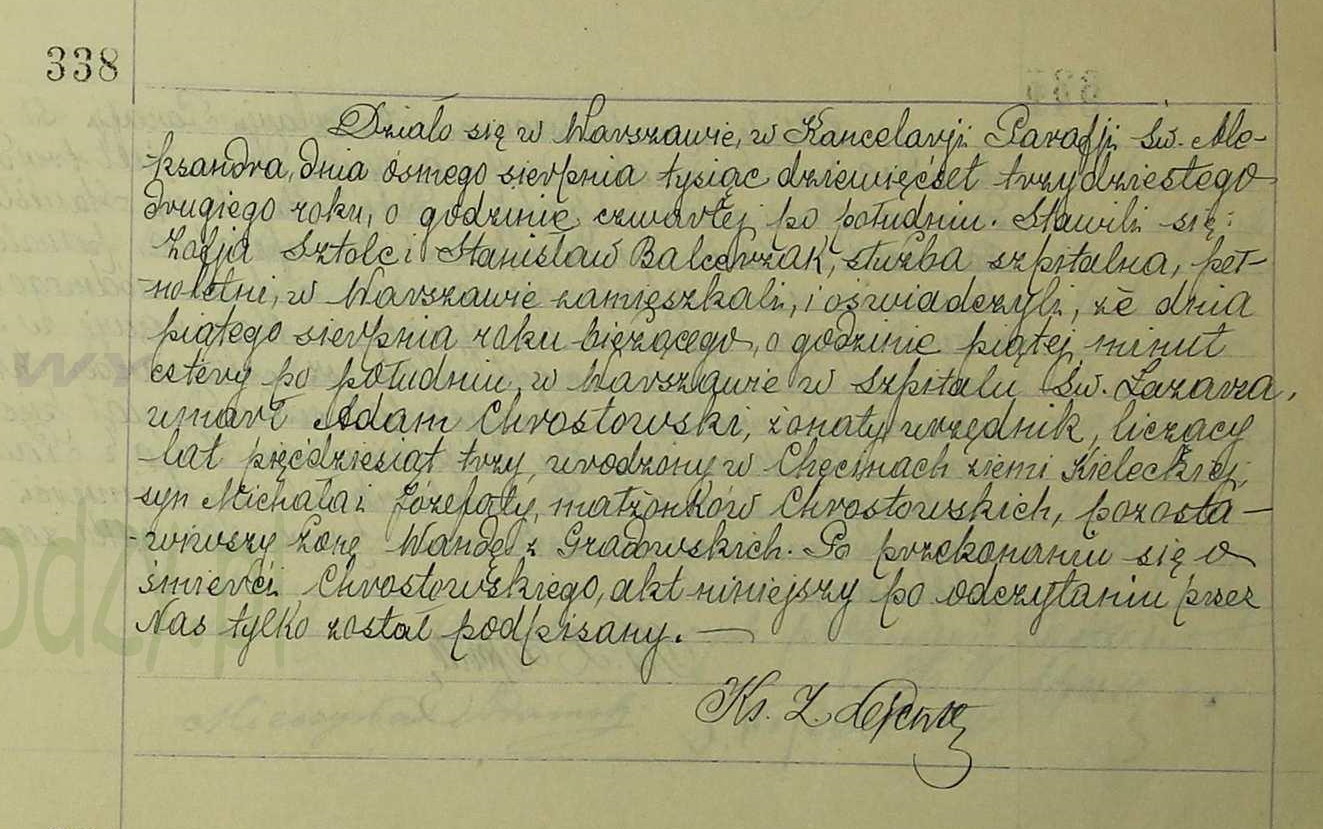 338
Działo się w Warszawie, w Kancelarji Parafji Św. Ale-
ksandra, dnia ósmego sierpnia tysiąc dziewięćset trzydziestego
drugiego roku, o godzinie czwartej po południu. Stawili się:
Zofja Sztolc i Stanisław Balcerzak, służba szpitalna, peł-
noletni, w Warszawie zamieszkali, i oświadczyli, że dnia
piątego sierpnia roku bieżącego, o godzinie piątej minut
cztery po południu, w Warszawie w Szpitalu Św. Łazarza,
umarł Adam Chrostowski, żonaty urzędnik, liczący
lat pięćdziesiąt trzy, urodzony w Chęcinach ziemi Kieleckiej,
syn Michała i Józefaty, małżonków Chrostowskich, pozosta-
-wiwszy żonę Wandę z Gradowskich. Po przekonaniu się o
śmierci Chrostowskiego, akt niniejszy po odczytaniu przez
Nas tylko został podpisany. —
Ks. Z.